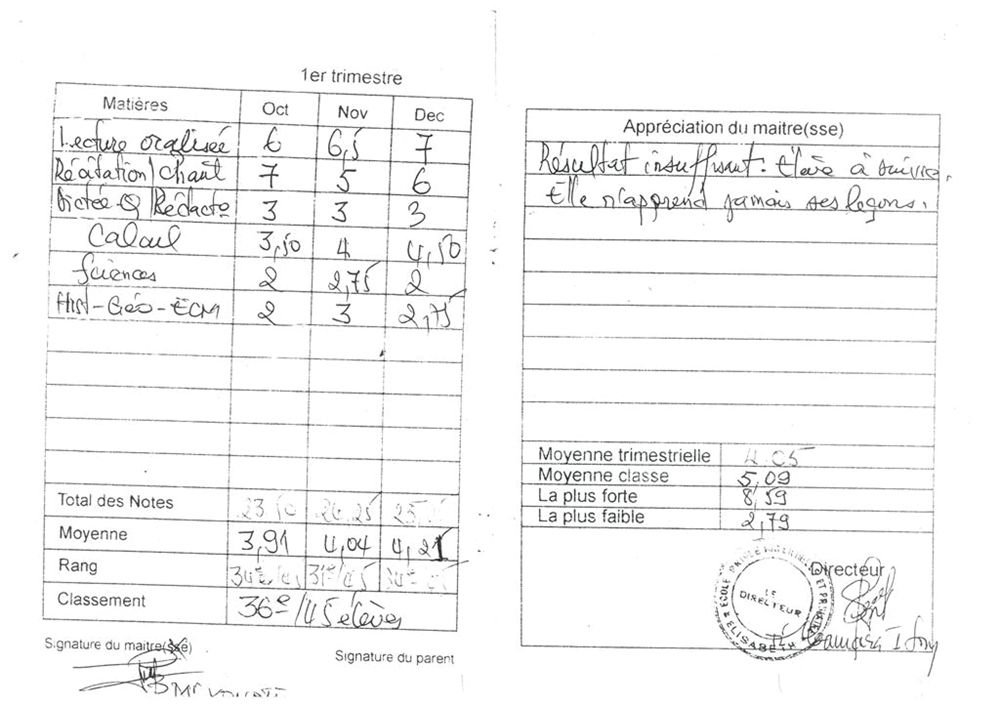 1er trimestre
Matières Oct Nov Dec
Lecture oralisée 6 6,5 7
Récitation/chant 7 5 6
Dictée & Rédacto 3 3 3
Calcul 3,50 4 4,50
Sciences 2 2,75 2
Hist-Géo-ECM 2 3 2,75
Total des Notes 23,50 24,25
Moyenne 3,91 4,04 4,21
Rang
Classement 36e/45 élèves
Signature du maitre(sse)
Signature du parent
Appréciation du maitre(sse)
Résultat insuffisant. Elève à suivre.
Elle n'apprend jamais ses leçons.
Moyenne trimestrielle 4.05
Moyenne classe 5,09
La plus forte 8,59
La plus faible 2,79
Directeur
LE
DIRECTEUR
ELISABETH